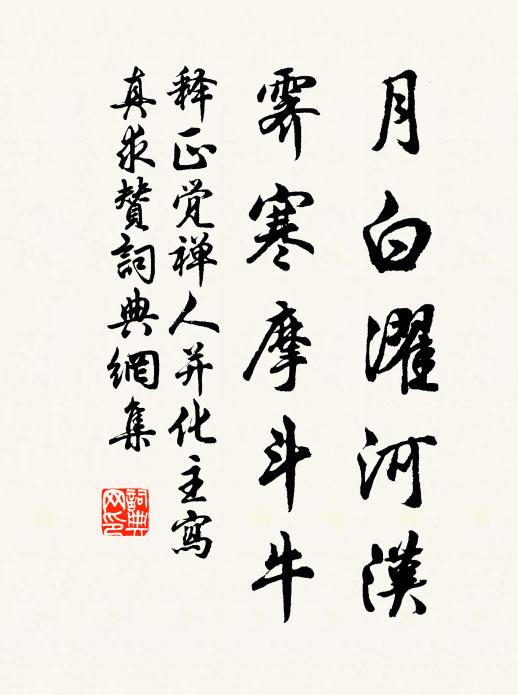 月白濯河漢
霽寒摩斗牛
释正觉禅人并化主寫
真求贊詞典網集
詞典
网印